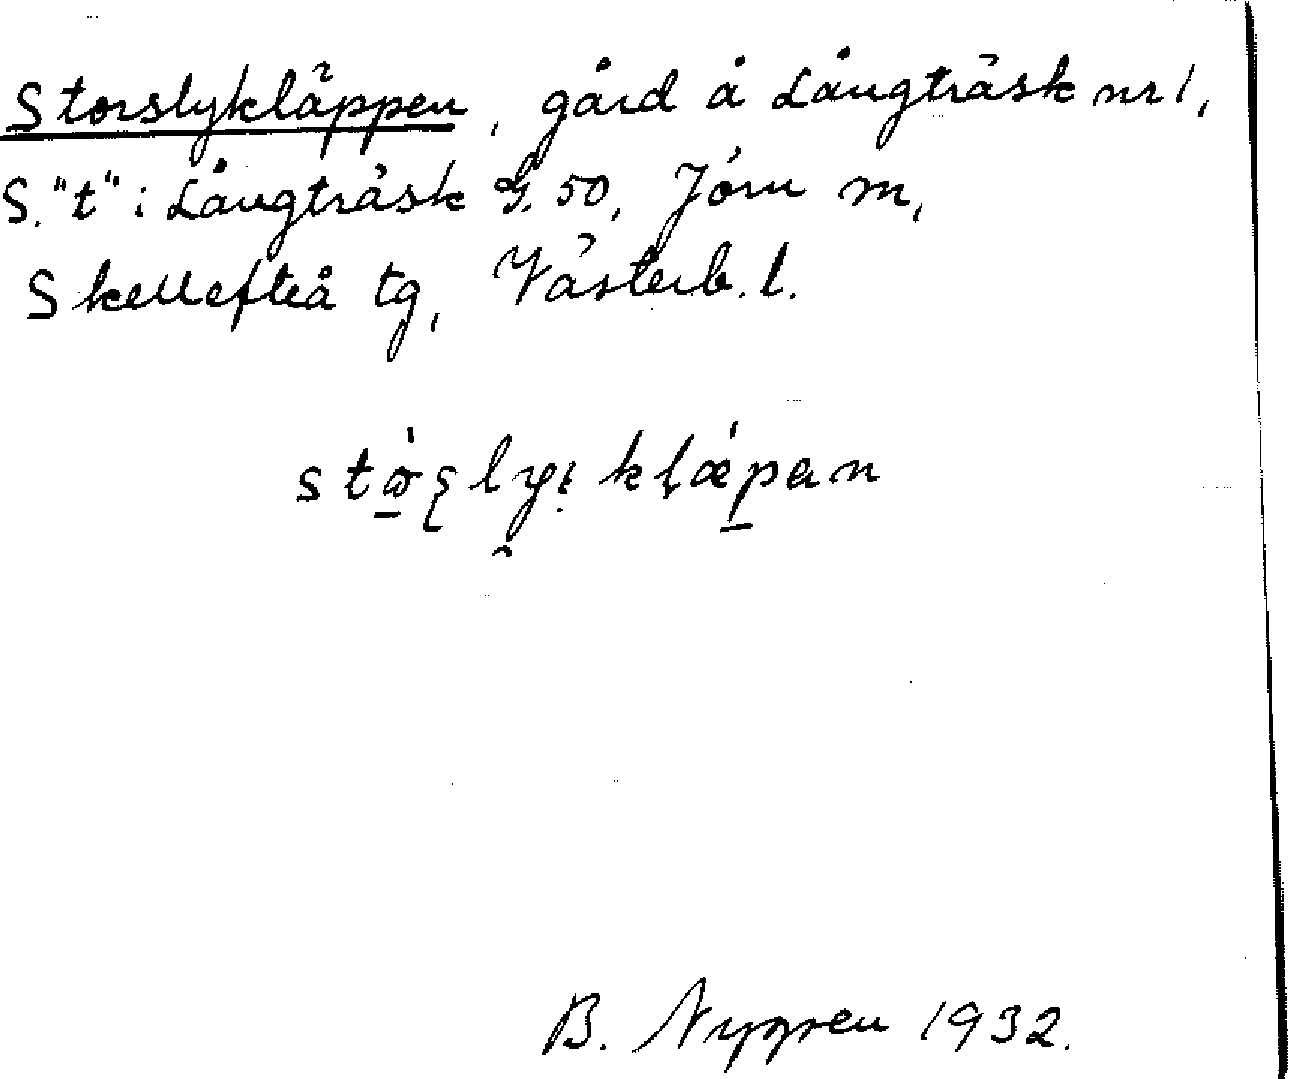 Storslykläppen, gård å Långträsk nr 1,
S. "t" i Långträsk G. 50, Jörn m,
Skellefteå tg, Västerb. l.
stø̀ʂlyi kḷǽpan
B. Nygren 1932.